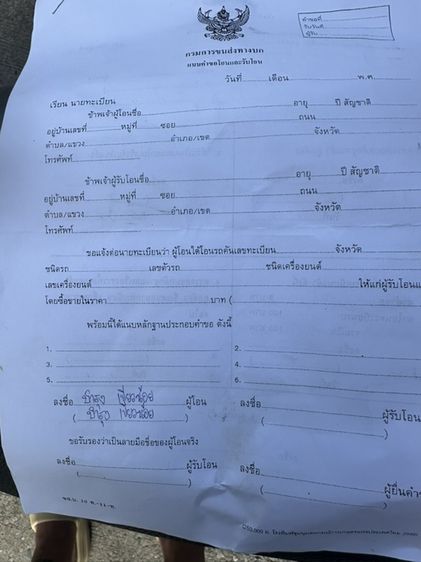 คำขอที่
รับวันที่
ผู้รับ
กรมการขนส่งทางบก
แบบคำขอโอนและรับโอน
วันที่ เดือน พ.ศ.
เรียน นายทะเบียน
ข้าพเจ้าผู้โอนชื่อ อายุ ปี สัญชาติ
อยู่บ้านเลขที่ หมู่ที่ ซอย ถนน
ตำบล/แขวง อำเภอ/เขต จังหวัด
โทรศัพท์
ข้าพเจ้าผู้รับโอนชื่อ อายุ ปี สัญชาติ
อยู่บ้านเลขที่ หมู่ที่ ซอย ถนน
ตำบล/แขวง อำเภอ/เขต จังหวัด
โทรศัพท์
ขอแจ้งต่อนายทะเบียนว่า ผู้โอนได้โอนรถคันเลขทะเบียน จังหวัด
ชนิดรถ เลขตัวรถ ชนิดเครื่องยนต์
เลขเครื่องยนต์ ให้แก่ผู้รับโอน
โดยซื้อขายในราคา บาท (
พร้อมนี้ได้แนบหลักฐานประกอบคำขอ ดังนี้
1. 2.
3. 4.
5. 6.
ลงชื่อ ผู้โอน ลงชื่อ ผู้รับโอน
( ) (
ขอรับรองว่าเป็นลายมือชื่อของผู้โอนจริง
ลงชื่อ ผู้รับโอน ลงชื่อ ผู้ยื่นคำ
( ) (